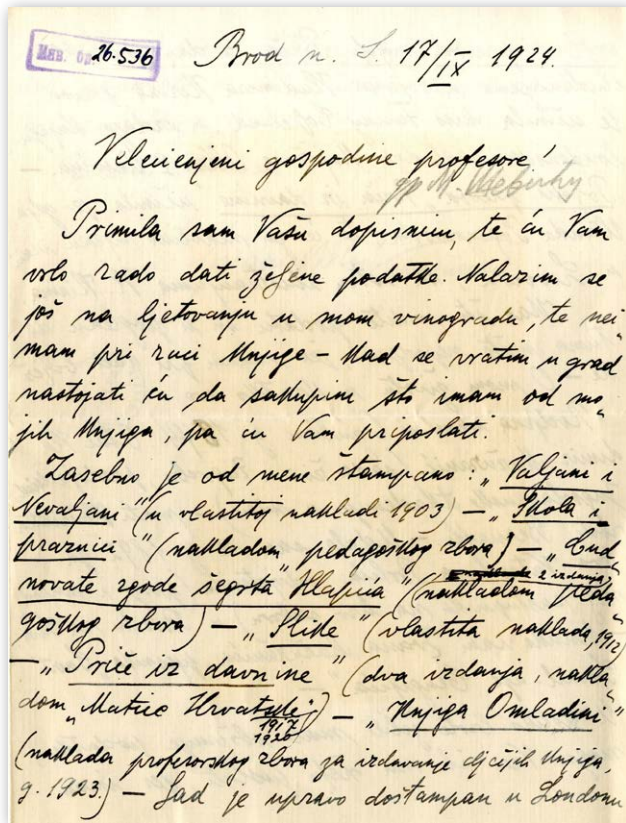 Инв. бр. 26.536
Brod n. S. 17/IX 1924.
Velecienjeni gospodine profesore!
gp M.
Primila sam Vašu dopisnicu, te ću Vam
vrlo rado dati željene podatke. Nalazim se
još na ljetovanju u mom vinogradu, te nei
mam pri ruci knjige – Kad se vratim u grad
nastojati ću da sakupim što imam od mo„
jih knjiga, pa ću Vam priposlati.
Zasebno je od mene štampano: „Valjani i
Nevaljani" (u vlastitoj nakladi 1903) – „Škola i
praznici" (nakladom „pedagoškog zbora) – „Čud„
novate zgode šegrta Hlapića" (nakladom peda
2 izdanja
goškog zbora) – „Slike" (vlastita naklada, 1912)
– „Priče iz davnine" (dva izdanja, nakla„
dom „Matice Hrvatske;) – „Knjiga Omladini"
1917
1920
(naklada profesorskog zbora za izdavanje dječijih knjiga,
g. 1923.) – Sad je upravo doštampan u Londonu